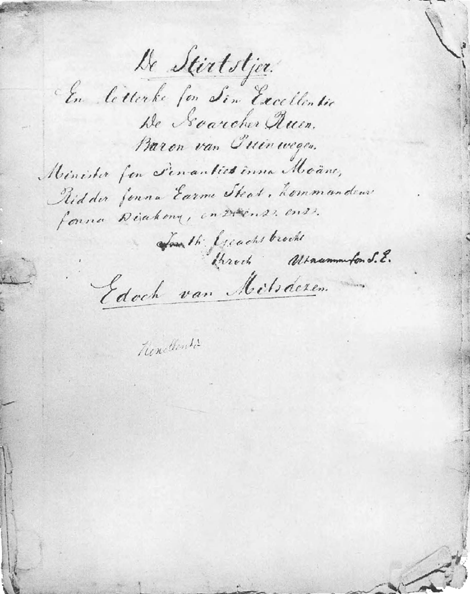 De Stirtstjer.
En letterke fon Sin Excellentie
De Noarcher Ruen.
Baron van Puinwegen.
Minister fon Finanties inna Moäne,
Ridder fonna Earms Steat, Kommandeur
fonna Diakony, enz. enz. enz.
th. Geachs brochs
throch Utnamme fon S. E.
Edoch van Mitsdezen.